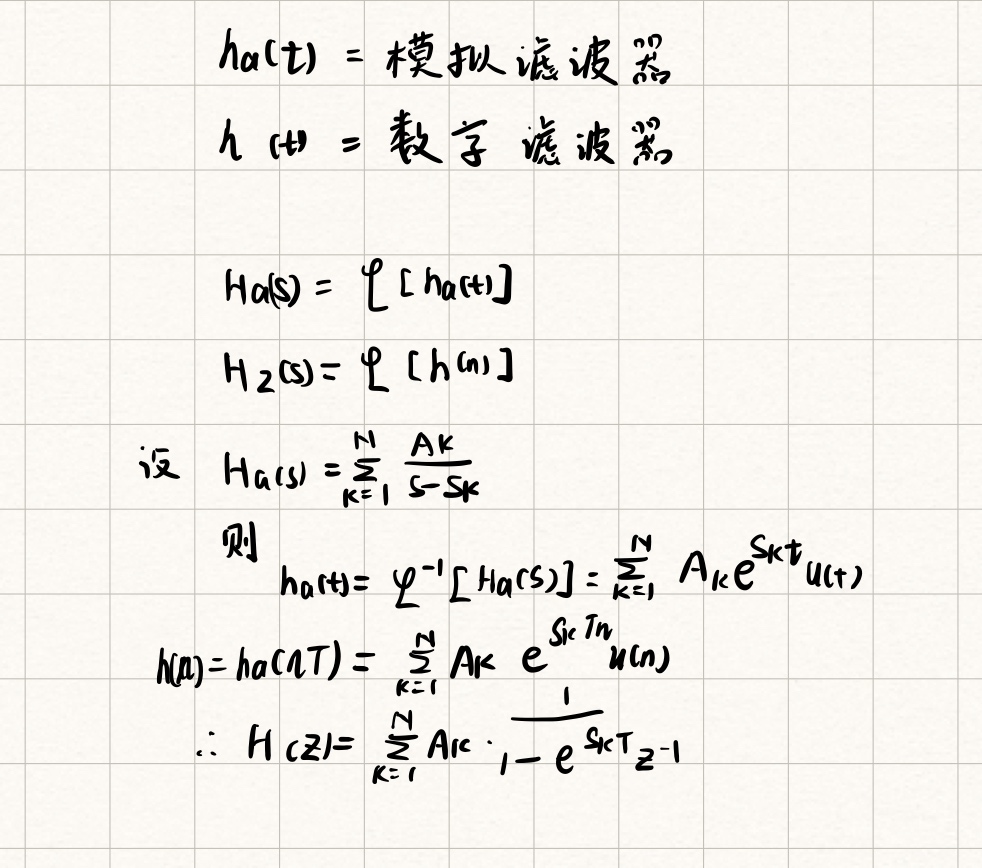 ha(t) = 模拟滤波器
h(t) = 数字滤波器
Ha(s) = ℒ[ha(t)]
Hz(s) = ℒ[h(n)]
设 Ha(s) = ∑_{k=1}^{N} \frac{Ak}{s-sk}
则
ha(t) = ℒ⁻¹[Ha(s)] = ∑_{k=1}^{N} Ak e^{skt} u(t)
h(n) = ha(nT) = ∑_{k=1}^{N} Ak e^{skTn} u(n)
∴ H(z) = ∑_{k=1}^{N} Ak · \frac{1}{1-e^{skT}z^{-1}}